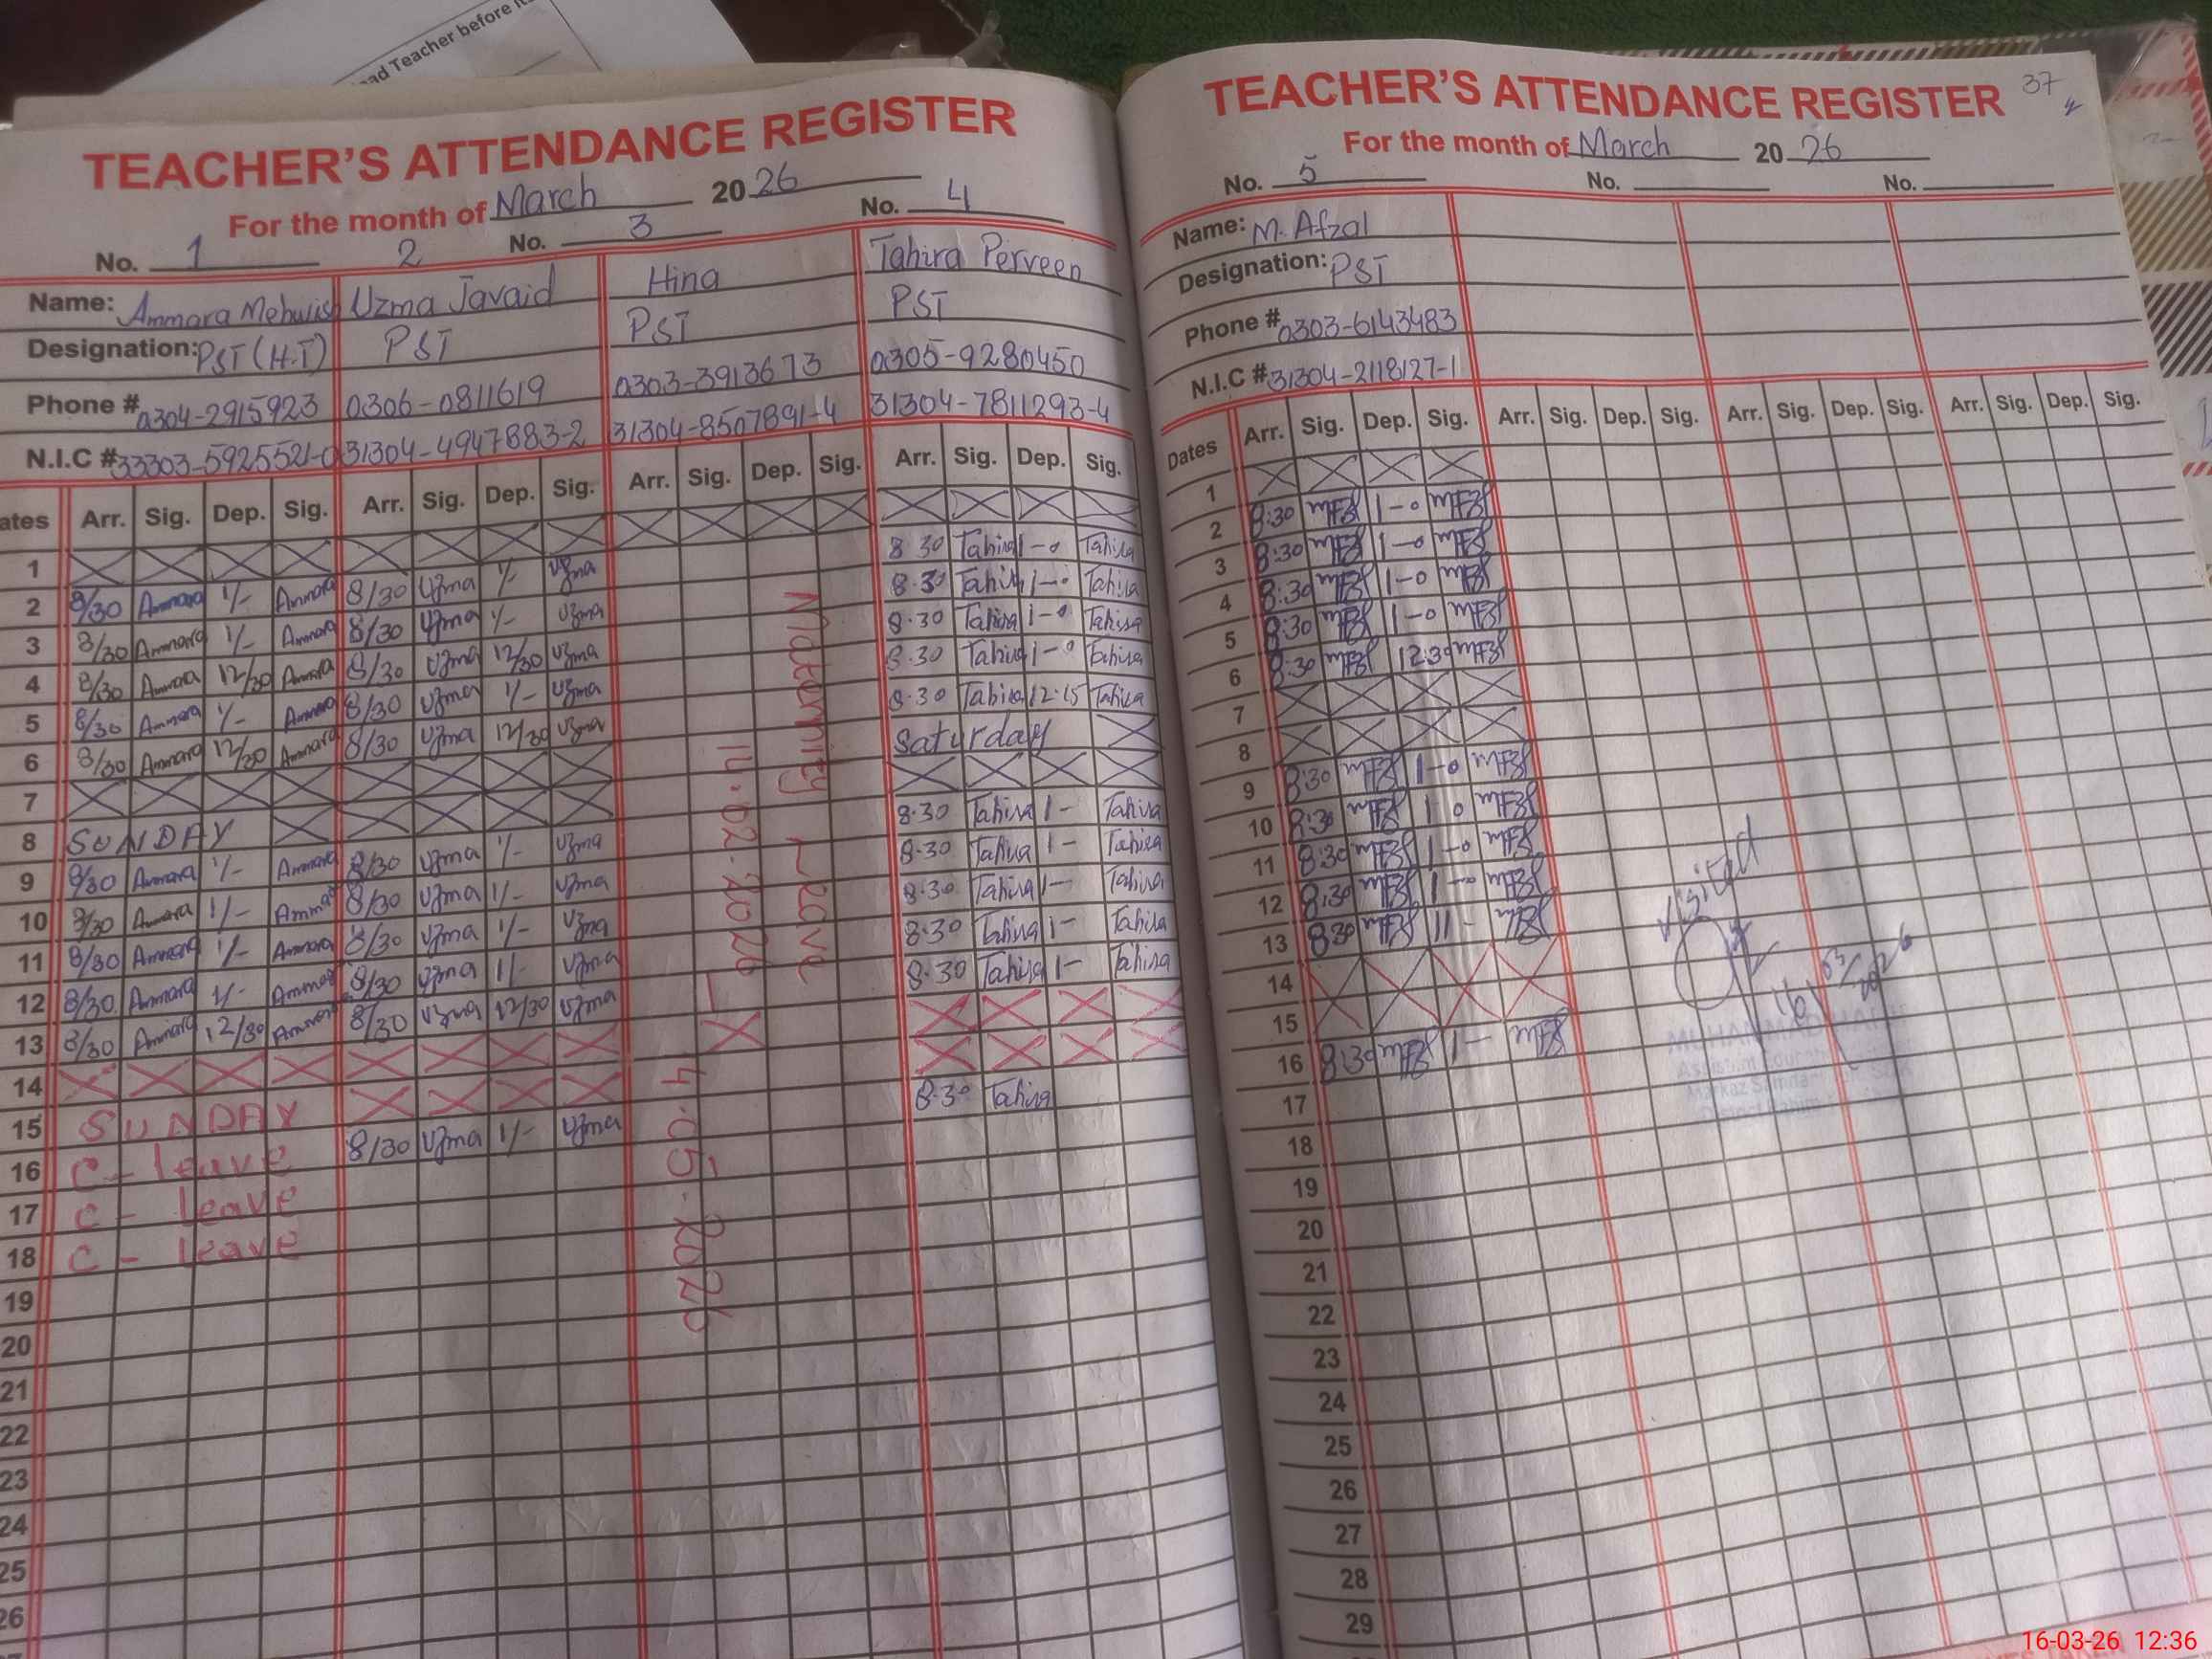 ad Teacher before it
TEACHER'S ATTENDANCE REGISTER
For the month of March 2026
No. 1 2 No. 3 No. 4
Name: Ammara Mehwish Uzma Javaid Hina Tahira Perveen
Designation: PST (H.T) PST PST PST
Phone # 0304-2915923 0306-0811619 0303-3913673 0305-9280450
N.I.C # 33303-5925521-0 31304-4947883-2 31304-8507891-4 31304-7811293-4
ates Arr. Sig. Dep. Sig. Arr. Sig. Dep. Sig. Arr. Sig. Dep. Sig. Arr. Sig. Dep. Sig.
1
2 8/30 Ammara 1/- Ammara 8/30 Uzma 1/- Uzma 8.30 Tahira 1-0 Tahira
3 8/30 Ammara 1/- Ammara 8/30 Uzma 1/- Uzma 8.30 Tahira 1-0 Tahira
4 8/30 Ammara 12/30 Ammara 8/30 Uzma 12/30 Uzma 8.30 Tahira 1-0 Tahira
5 8/30 Ammara 1/- Ammara 8/30 Uzma 1/- Uzma 8.30 Tahira 1-0 Tahira
6 8/30 Ammara 12/30 Ammara 8/30 Uzma 12/30 Uzma 8.30 Tahira 12.15 Tahira
7 Saturday
8 SUNDAY
9 8/30 Ammara 1/- Ammara 8/30 Uzma 1/- Uzma 8.30 Tahira 1- Tahira
10 8/30 Ammara 1/- Ammara 8/30 Uzma 1/- Uzma 8.30 Tahira 1- Tahira
11 8/30 Ammara 1/- Ammara 8/30 Uzma 1/- Uzma 8.30 Tahira 1- Tahira
12 8/30 Ammara 1/- Ammara 8/30 Uzma 1/- Uzma 8.30 Tahira 1- Tahira
13 8/30 Ammara 12/30 Ammara 8/30 Uzma 12/30 Uzma 8.30 Tahira 1- Tahira
14
15 SUNDAY
16 C-leave 8/30 Uzma 1/- Uzma 8.30 Tahira
17 C-leave
18 C-leave
19
20
21
22
23
24
25
26
Maternity Leave
14.02.2026 -
4.05.2026
TEACHER'S ATTENDANCE REGISTER
37
For the month of March 2026
No. 5 No. No.
Name: M. Afzal
Designation: PST
Phone # 0303-6143483
N.I.C # 31304-2118127-1
Dates Arr. Sig. Dep. Sig. Arr. Sig. Dep. Sig. Arr. Sig. Dep. Sig. Arr. Sig. Dep. Sig.
1
2 8:30 1-0
3 8:30 1-0
4 8:30 1-0
5 8:30 1-0
6 8:30 12:30
7
8
9 8:30 1-0
10 8:30 1 0
11 8:30 1-0
12 8:30 1-0
13 8:30 11-
14
15
16 8:30 1-
17
18
19
20
21
22
23
24
25
26
27
28
29
visited
16/03/2026
MUHAMMAD
16-03-26 12:36